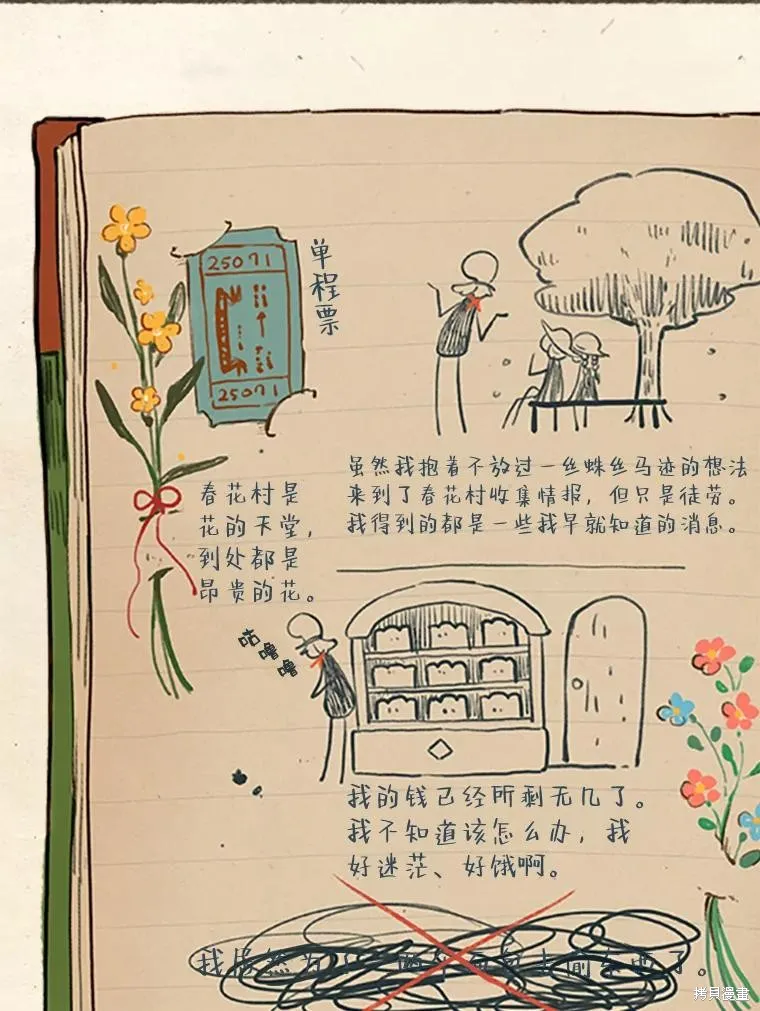 25071
单程票
25071
虽然我抱着不放过一丝蛛丝马迹的想法
来到了春花村收集情报，但只是徒劳。
我得到的都是一些我早就知道的消息。
春花村是
花的天堂，
到处都是
昂贵的花。
咕噜噜
我的钱已经所剩无几了。
我不知道该怎么办，我
好迷茫、好饿啊。
我居然为了一两个面包去偷东西了。
拷貝漫畫